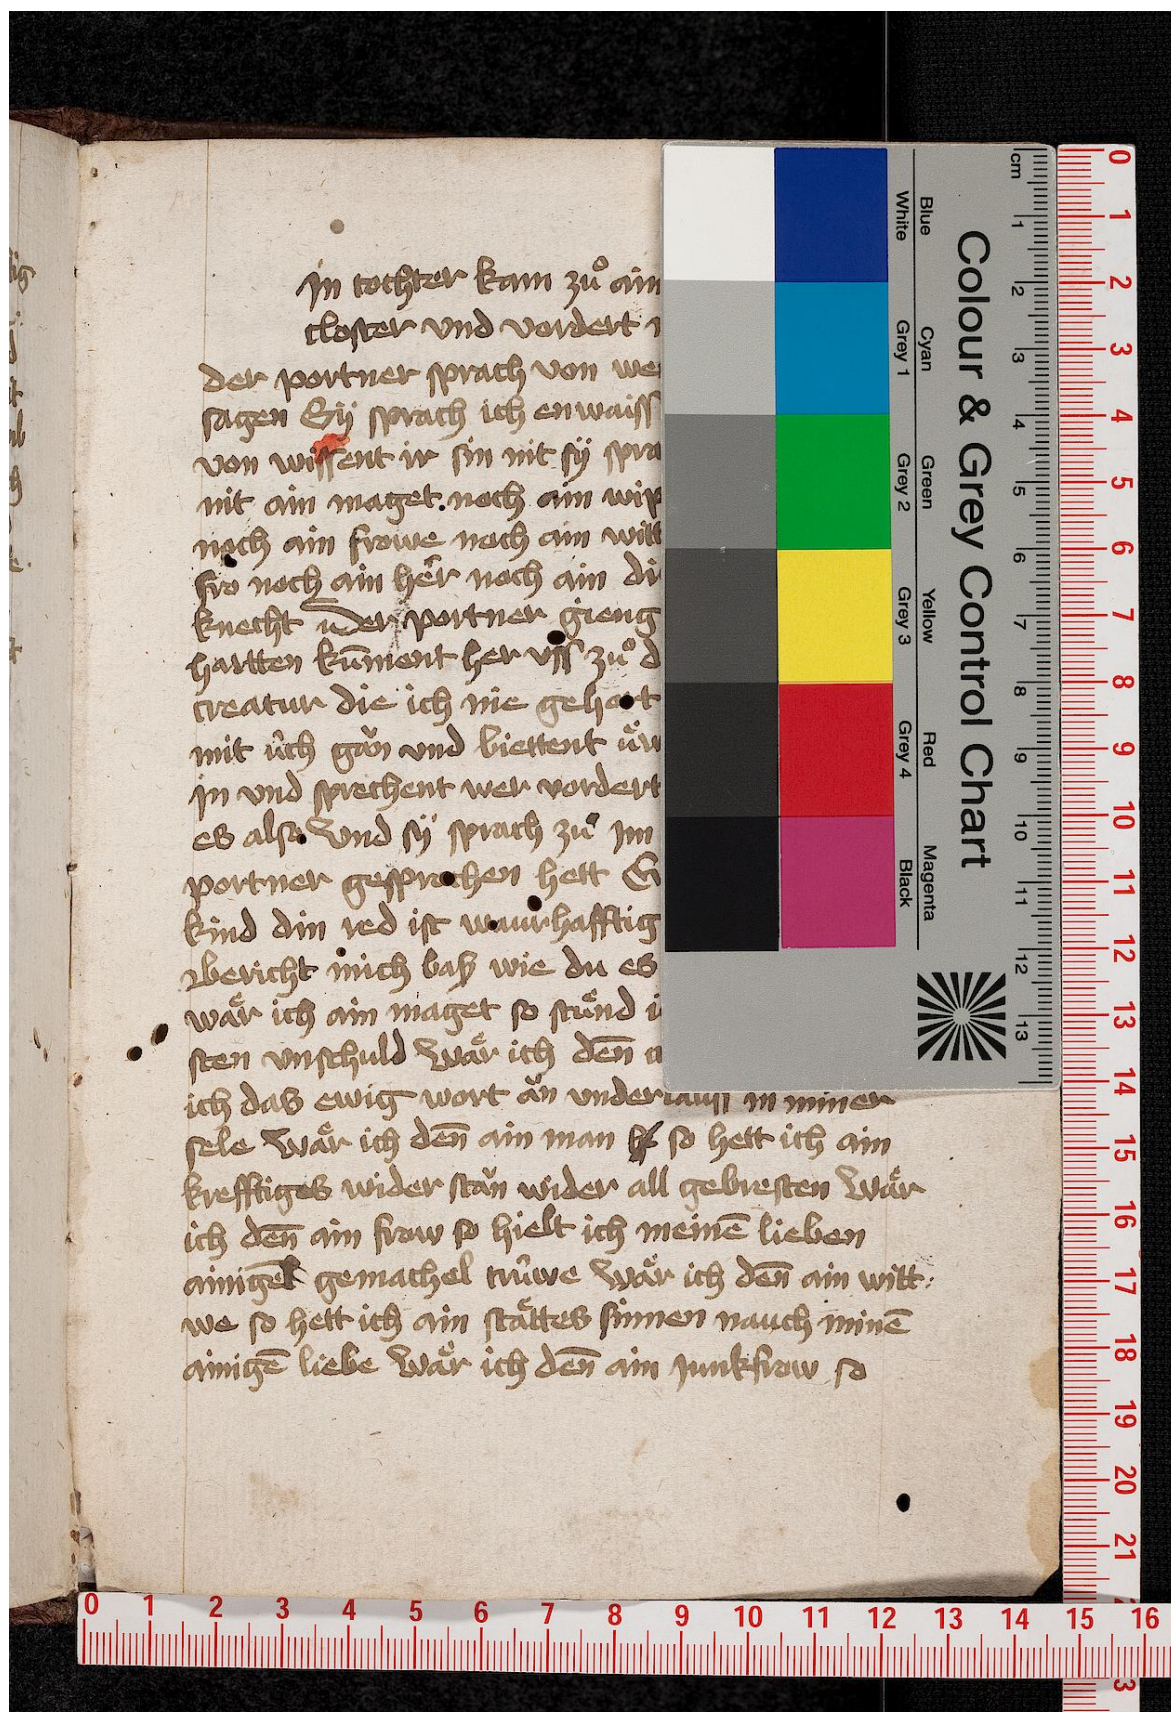 jn tochter kam zuͦ ain
closter vnd vordert
der portner sprach von
sagen Sÿ sprach ich enwaiſſ
von wiſſent ir sin nit sÿ
nit ain maget noch ain wip
noch ain frowe noch ain
fro noch ain her̄ noch ain
knecht der portner gieng
hartten kūment her vſſ zuͦ
creatur die ich nie gehort
mit uͤch gǎn vnd biettent
jn vnd sprechent wer vordert
es also vnd sÿ sprach zuͦ jm
portner gesprochen hett
kind din red ist waurhafftig
bericht mich baß wie du es
waͤr ich ain maget so stuͤnd
sten vnschuld Waͤr ich den̄
ich das ewig wort ǎn vnderlauſſ in miner
sele Waͤr ich den̄ ain man so hett ich ain
krefftiges wider stǎn wider all gebresten Waͤr
ich den̄ ain frow so hielt ich meinē lieben
gemachel truͤwe Waͤr ich den̄ ain witt
we so hett ich ain staͤttes sinnen nauch minē
ainigē liebe Waͤr ich den̄ ain junkfrow so
Colour & Grey Control Chart
Blue Cyan Green Yellow Red Magenta
White Grey 1 Grey 2 Grey 3 Grey 4 Black
cm 1 2 3 4 5 6 7 8 9 10 11 12 13
0 1 2 3 4 5 6 7 8 9 10 11 12 13 14 15 16 17 18 19 20 21
0 1 2 3 4 5 6 7 8 9 10 11 12 13 14 15 16